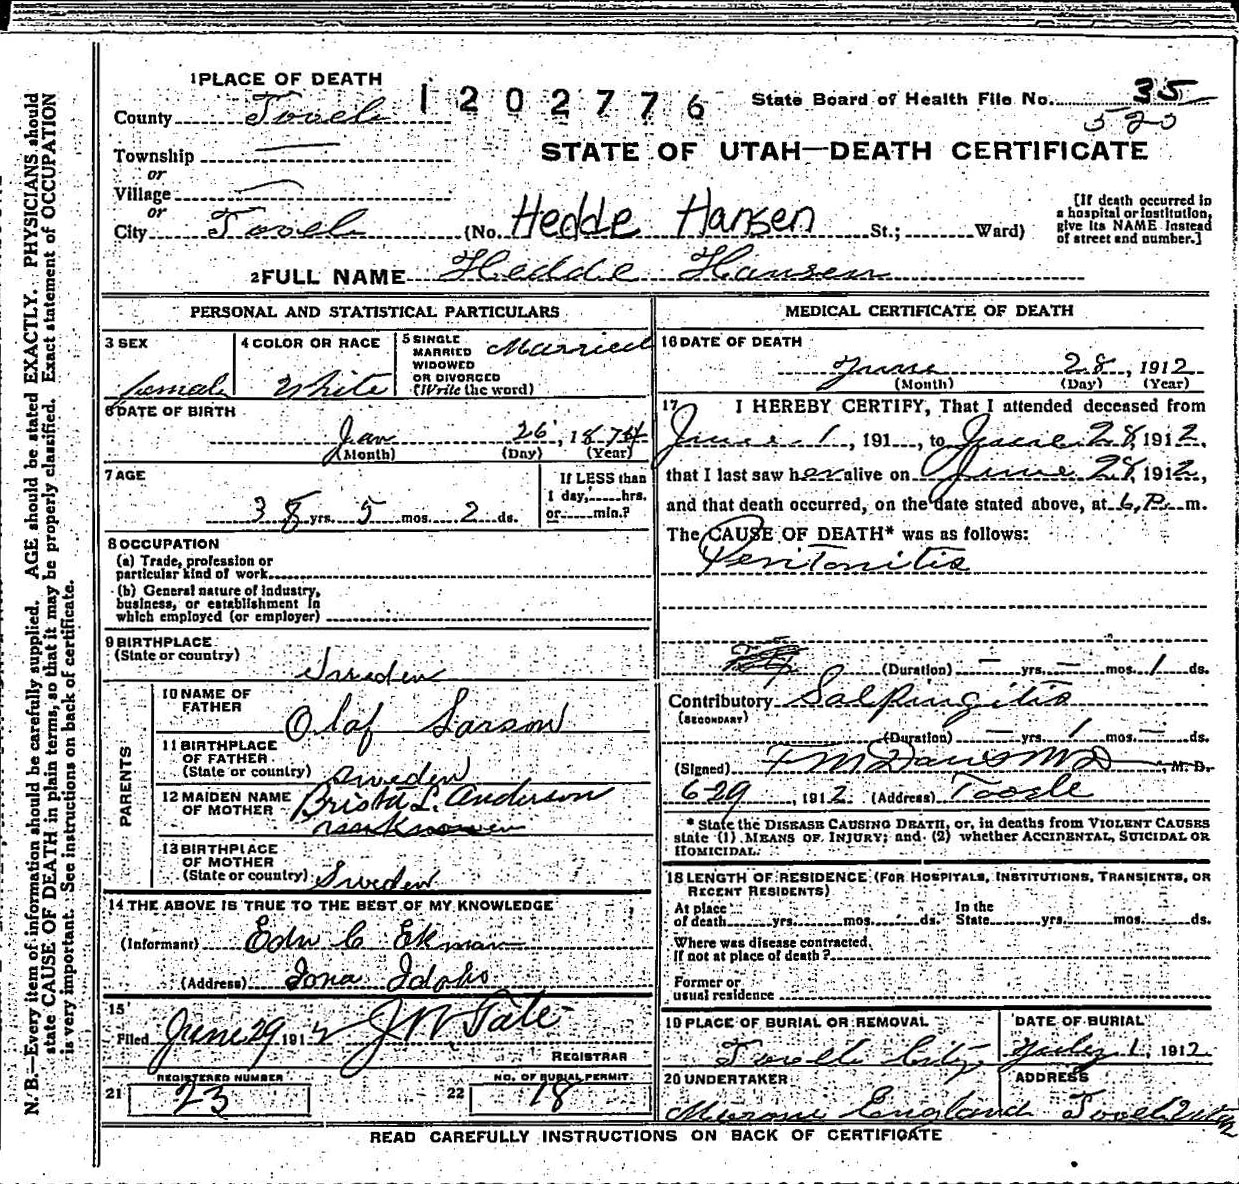 1 PLACE OF DEATH
1202776
State Board of Health File No. 35
520
County Tooele
STATE OF UTAH—DEATH CERTIFICATE
Township
or
Village
or
City Tooele (No. Hedde Hansen St.; Ward)
[If death occurred in a hospital or institution, give its NAME instead of street and number.]
2 FULL NAME Hedde Hansen
PERSONAL AND STATISTICAL PARTICULARS
3 SEX
female
4 COLOR OR RACE
White
5 SINGLE
MARRIED
WIDOWED
OR DIVORCED
(Write the word)
Married
6 DATE OF BIRTH
Jan 26, 1874
(Month) (Day) (Year)
7 AGE
38 yrs. 5 mos. 2 ds.
If LESS than
1 day, hrs.
or min.?
8 OCCUPATION
(a) Trade, profession or
particular kind of work
(b) General nature of industry,
business, or establishment in
which employed (or employer)
9 BIRTHPLACE
(State or country)
Sweden
PARENTS
10 NAME OF
FATHER
Olaf Larson
11 BIRTHPLACE
OF FATHER
(State or country) Sweden
12 MAIDEN NAME
OF MOTHER
L. Anderson
13 BIRTHPLACE
OF MOTHER
(State or country) Sweden
14 THE ABOVE IS TRUE TO THE BEST OF MY KNOWLEDGE
(Informant) Edw C Ekman
(Address) Iona Idaho
15
Filed June 29 1912 J M Tate
REGISTRAR
REGISTERED NUMBER
21 23
NO. OF BURIAL PERMIT.
22 18
MEDICAL CERTIFICATE OF DEATH
16 DATE OF DEATH
June 28, 1912
(Month) (Day) (Year)
17 I HEREBY CERTIFY, That I attended deceased from
June 1, 191 , to June 28, 1912,
that I last saw her alive on June 28, 1912,
and that death occurred, on the date stated above, at 6 P. m.
The CAUSE OF DEATH* was as follows:
Peritonitis
(Duration) — yrs. — mos. 1 ds.
Contributory Salpingitis
(SECONDARY)
(Duration) — yrs. 1 mos. — ds.
(Signed) F M Davis M D, M. D.
6-29, 1912 (Address) Tooele
* State the DISEASE CAUSING DEATH, or, in deaths from VIOLENT CAUSES
state (1) MEANS OF INJURY; and (2) whether ACCIDENTAL, SUICIDAL OR
HOMICIDAL.
18 LENGTH OF RESIDENCE (FOR HOSPITALS, INSTITUTIONS, TRANSIENTS, OR
RECENT RESIDENTS)
At place
of death yrs. mos. ds.
In the
State yrs. mos. ds.
Where was disease contracted,
If not at place of death?
Former or
usual residence
19 PLACE OF BURIAL OR REMOVAL
Tooele City
DATE OF BURIAL
July 1, 1912
20 UNDERTAKER
Moroni England
ADDRESS
Tooele Utah
READ CAREFULLY INSTRUCTIONS ON BACK OF CERTIFICATE
N. B.—Every item of information should be carefully supplied. AGE should be stated EXACTLY. PHYSICIANS should
state CAUSE OF DEATH in plain terms, so that it may be properly classified. Exact statement of OCCUPATION
is very important. See instructions on back of certificate.